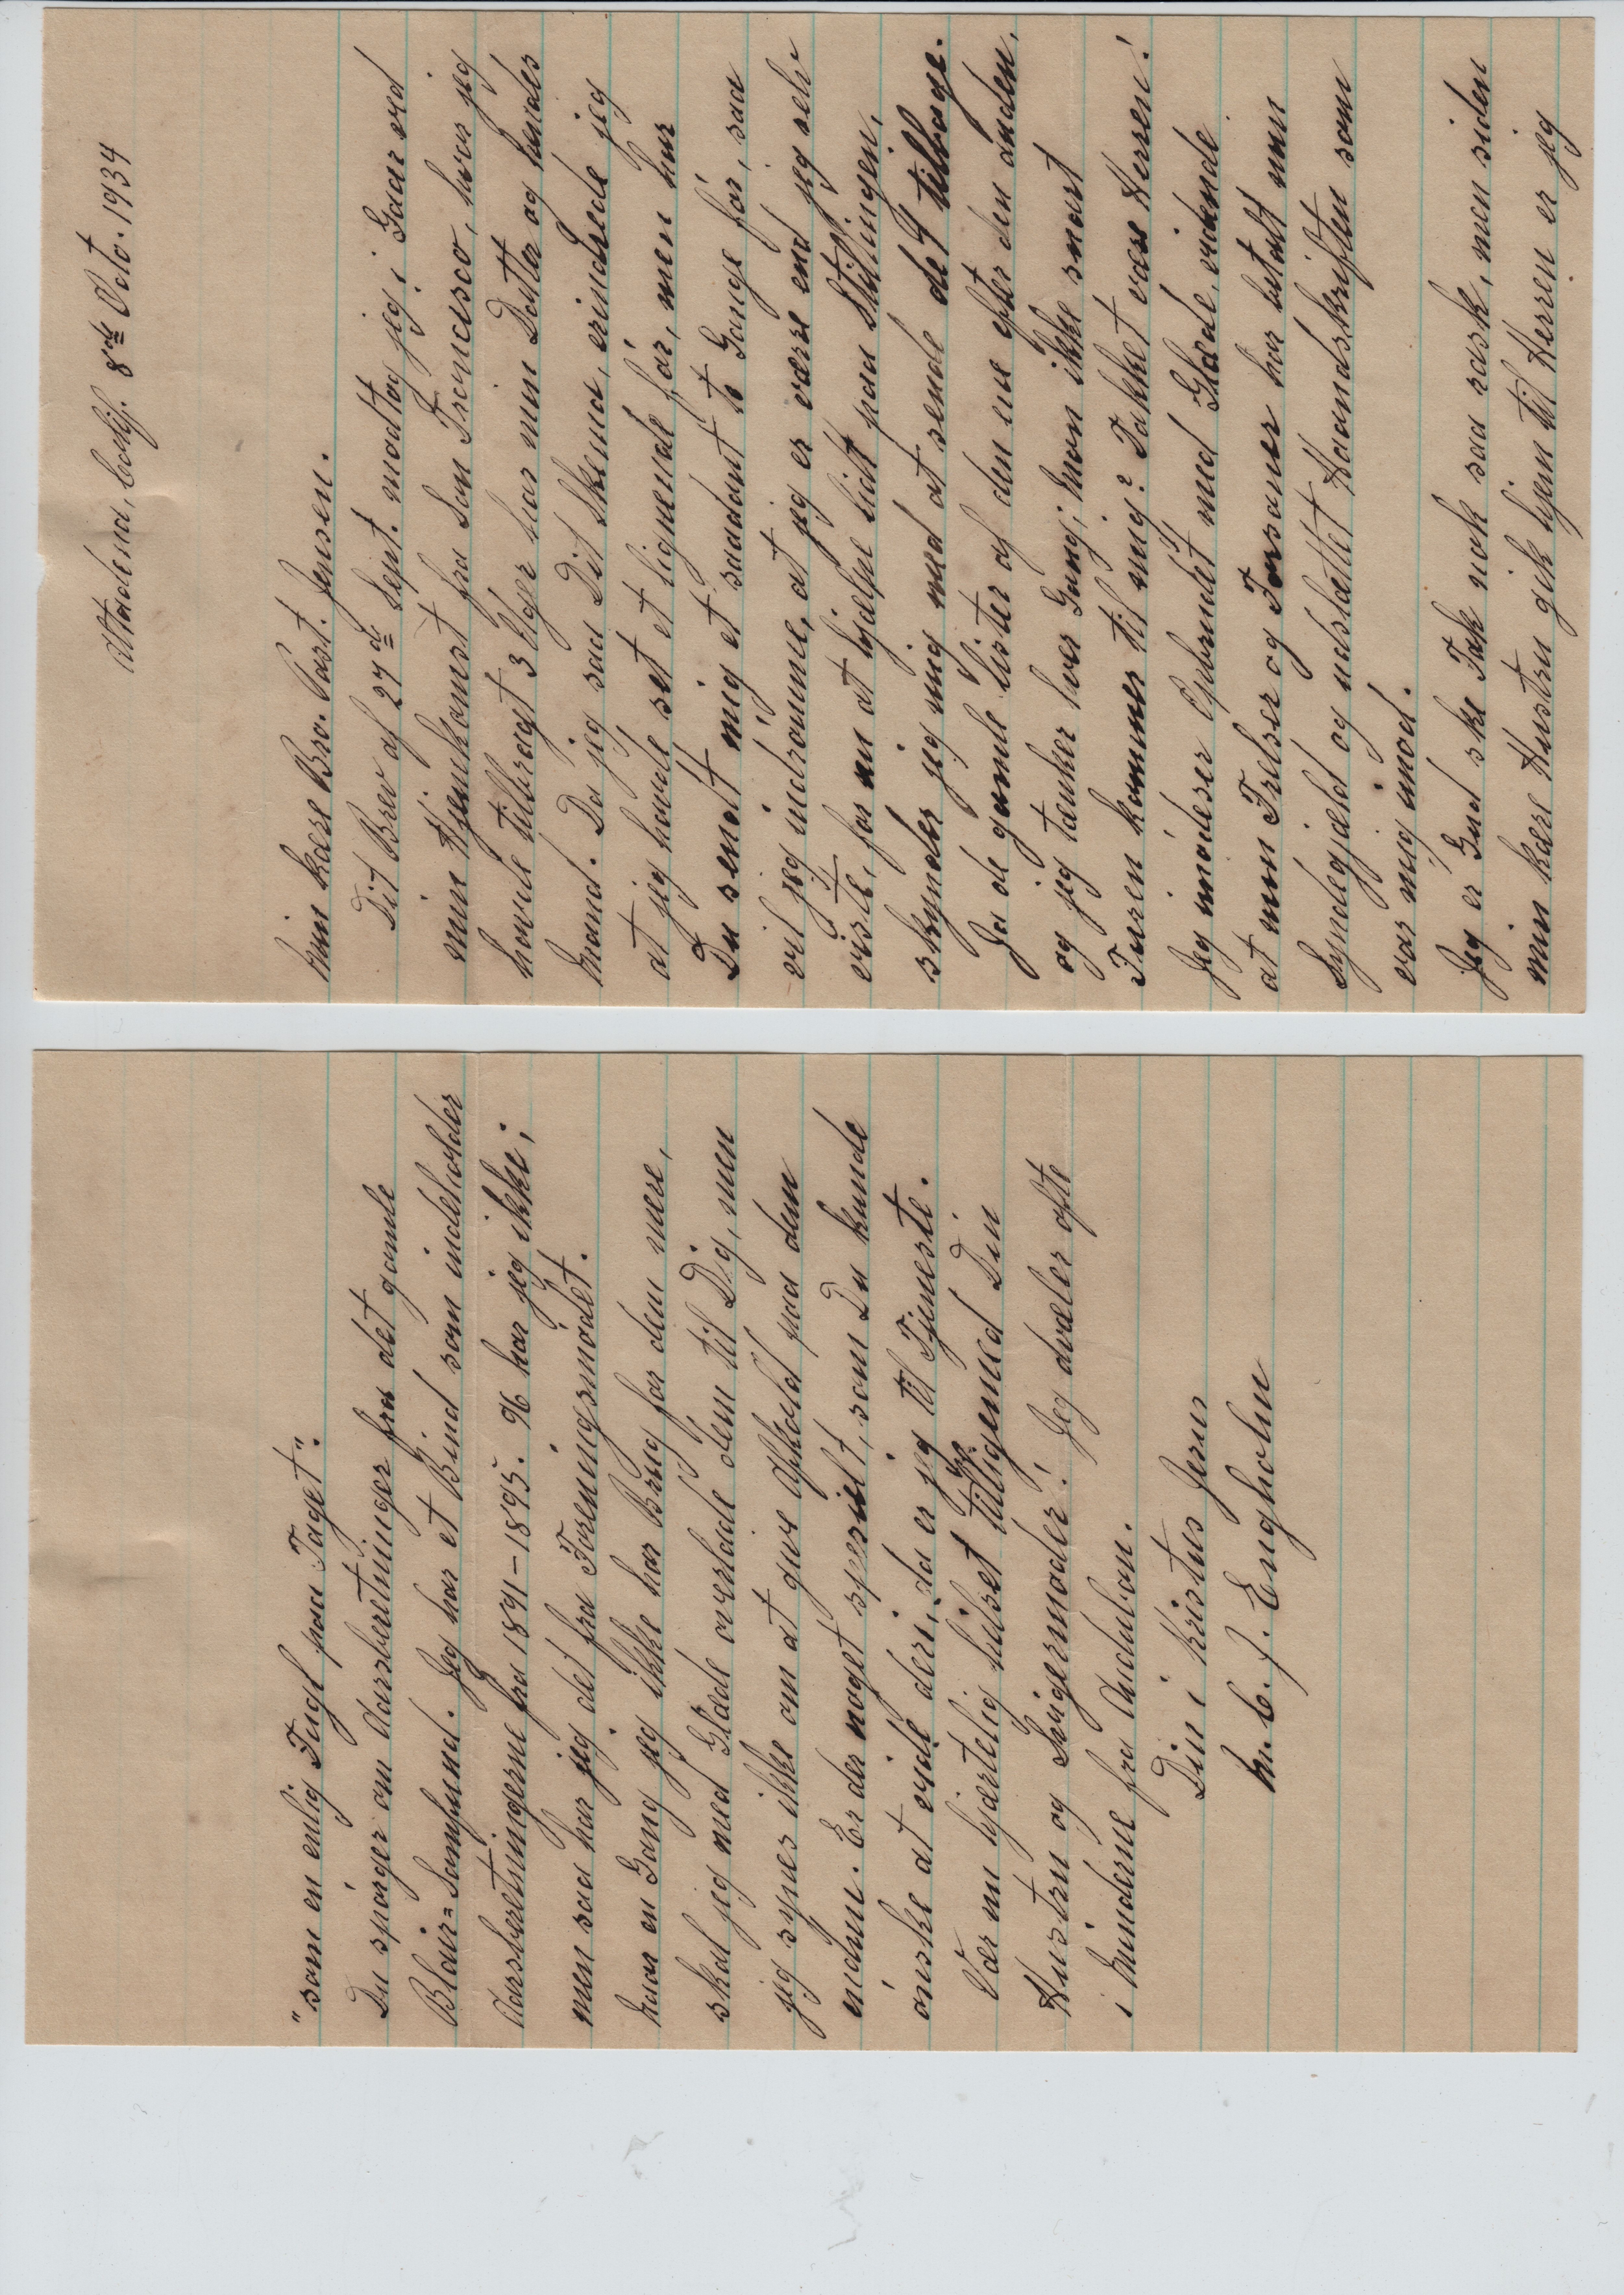 Altadena, Calif. 8de Octo. 1934
Min kære Bro. Past. Jensen.
Dit Brev af 27de Sept. modtog jeg i Gaar ved
min Hjemkomst fra San Francisco, hvor jeg
havde tilbragt 3 Uger hos min Datter og hendes
Mand. Da jeg saa Dit Skema, erindrede jeg
at jeg havde set et lignende før, men har
Du sendt mig et saadant to Gange før, saa
vil jeg indrømme, at jeg er værre end jeg selv
vidste, for nu at hjælpe lidt paa Stillingen,
skynder jeg mig med at sende det tilbage.
Ja de gamle lister af den ene efter den anden,
og jeg tænker hver Gang; Mon ikke snart
Turen kommer til mig? Takket være Herren!
Jeg imødeser Opbrudet med Glæde, vidende
at min Frelser og Forsoner har betalt min
Syndegjæld og udslættet Haandskriften som
var mig imod.
Jeg er Gud ske Tak nok saa rask, men siden
min kære Hustru gik hjem til Herren er jeg
"som en enlig Fugl paa Taget".
Du spørger om Aarsberetninger fra det gamle
Blair-Samfund. Jeg har et Bind som indeholder
Aarsberetningerne fra 1891-1895. 96 har jeg ikke;
men saa har jeg det fra Foreningsmødet.
Naar en Gang jeg ikke har Brug for dem mere,
skal jeg med Glæde overlade dem til Dig, men
jeg synes ikke om at give Afkald paa dem
endnu. Er der noget specielt, som Du kunde
ønske at vide deri, da er jeg til Tjeneste.
Vær nu hjærtelig hilset tilligemed Din
Hustru og Svigermoder! Jeg dvæler ofte
i Minderne fra Audubon.
Din i Kristus Jesus
M. C. J. Engholm